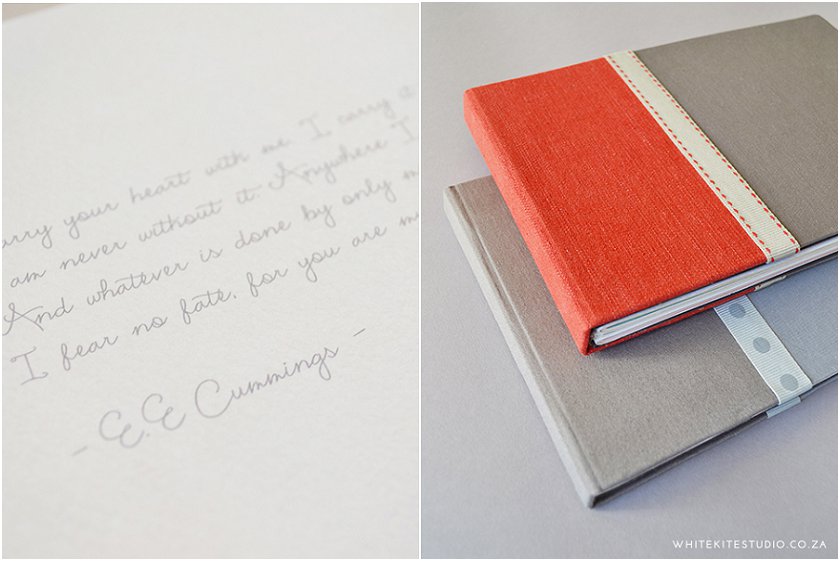 arry your heart with me I carry
am never without it. Anywhere I
And whatever is done by only m
I fear no fate, for you are m
- E.E Cummings -
WHITEKITESTUDIO.CO.ZA